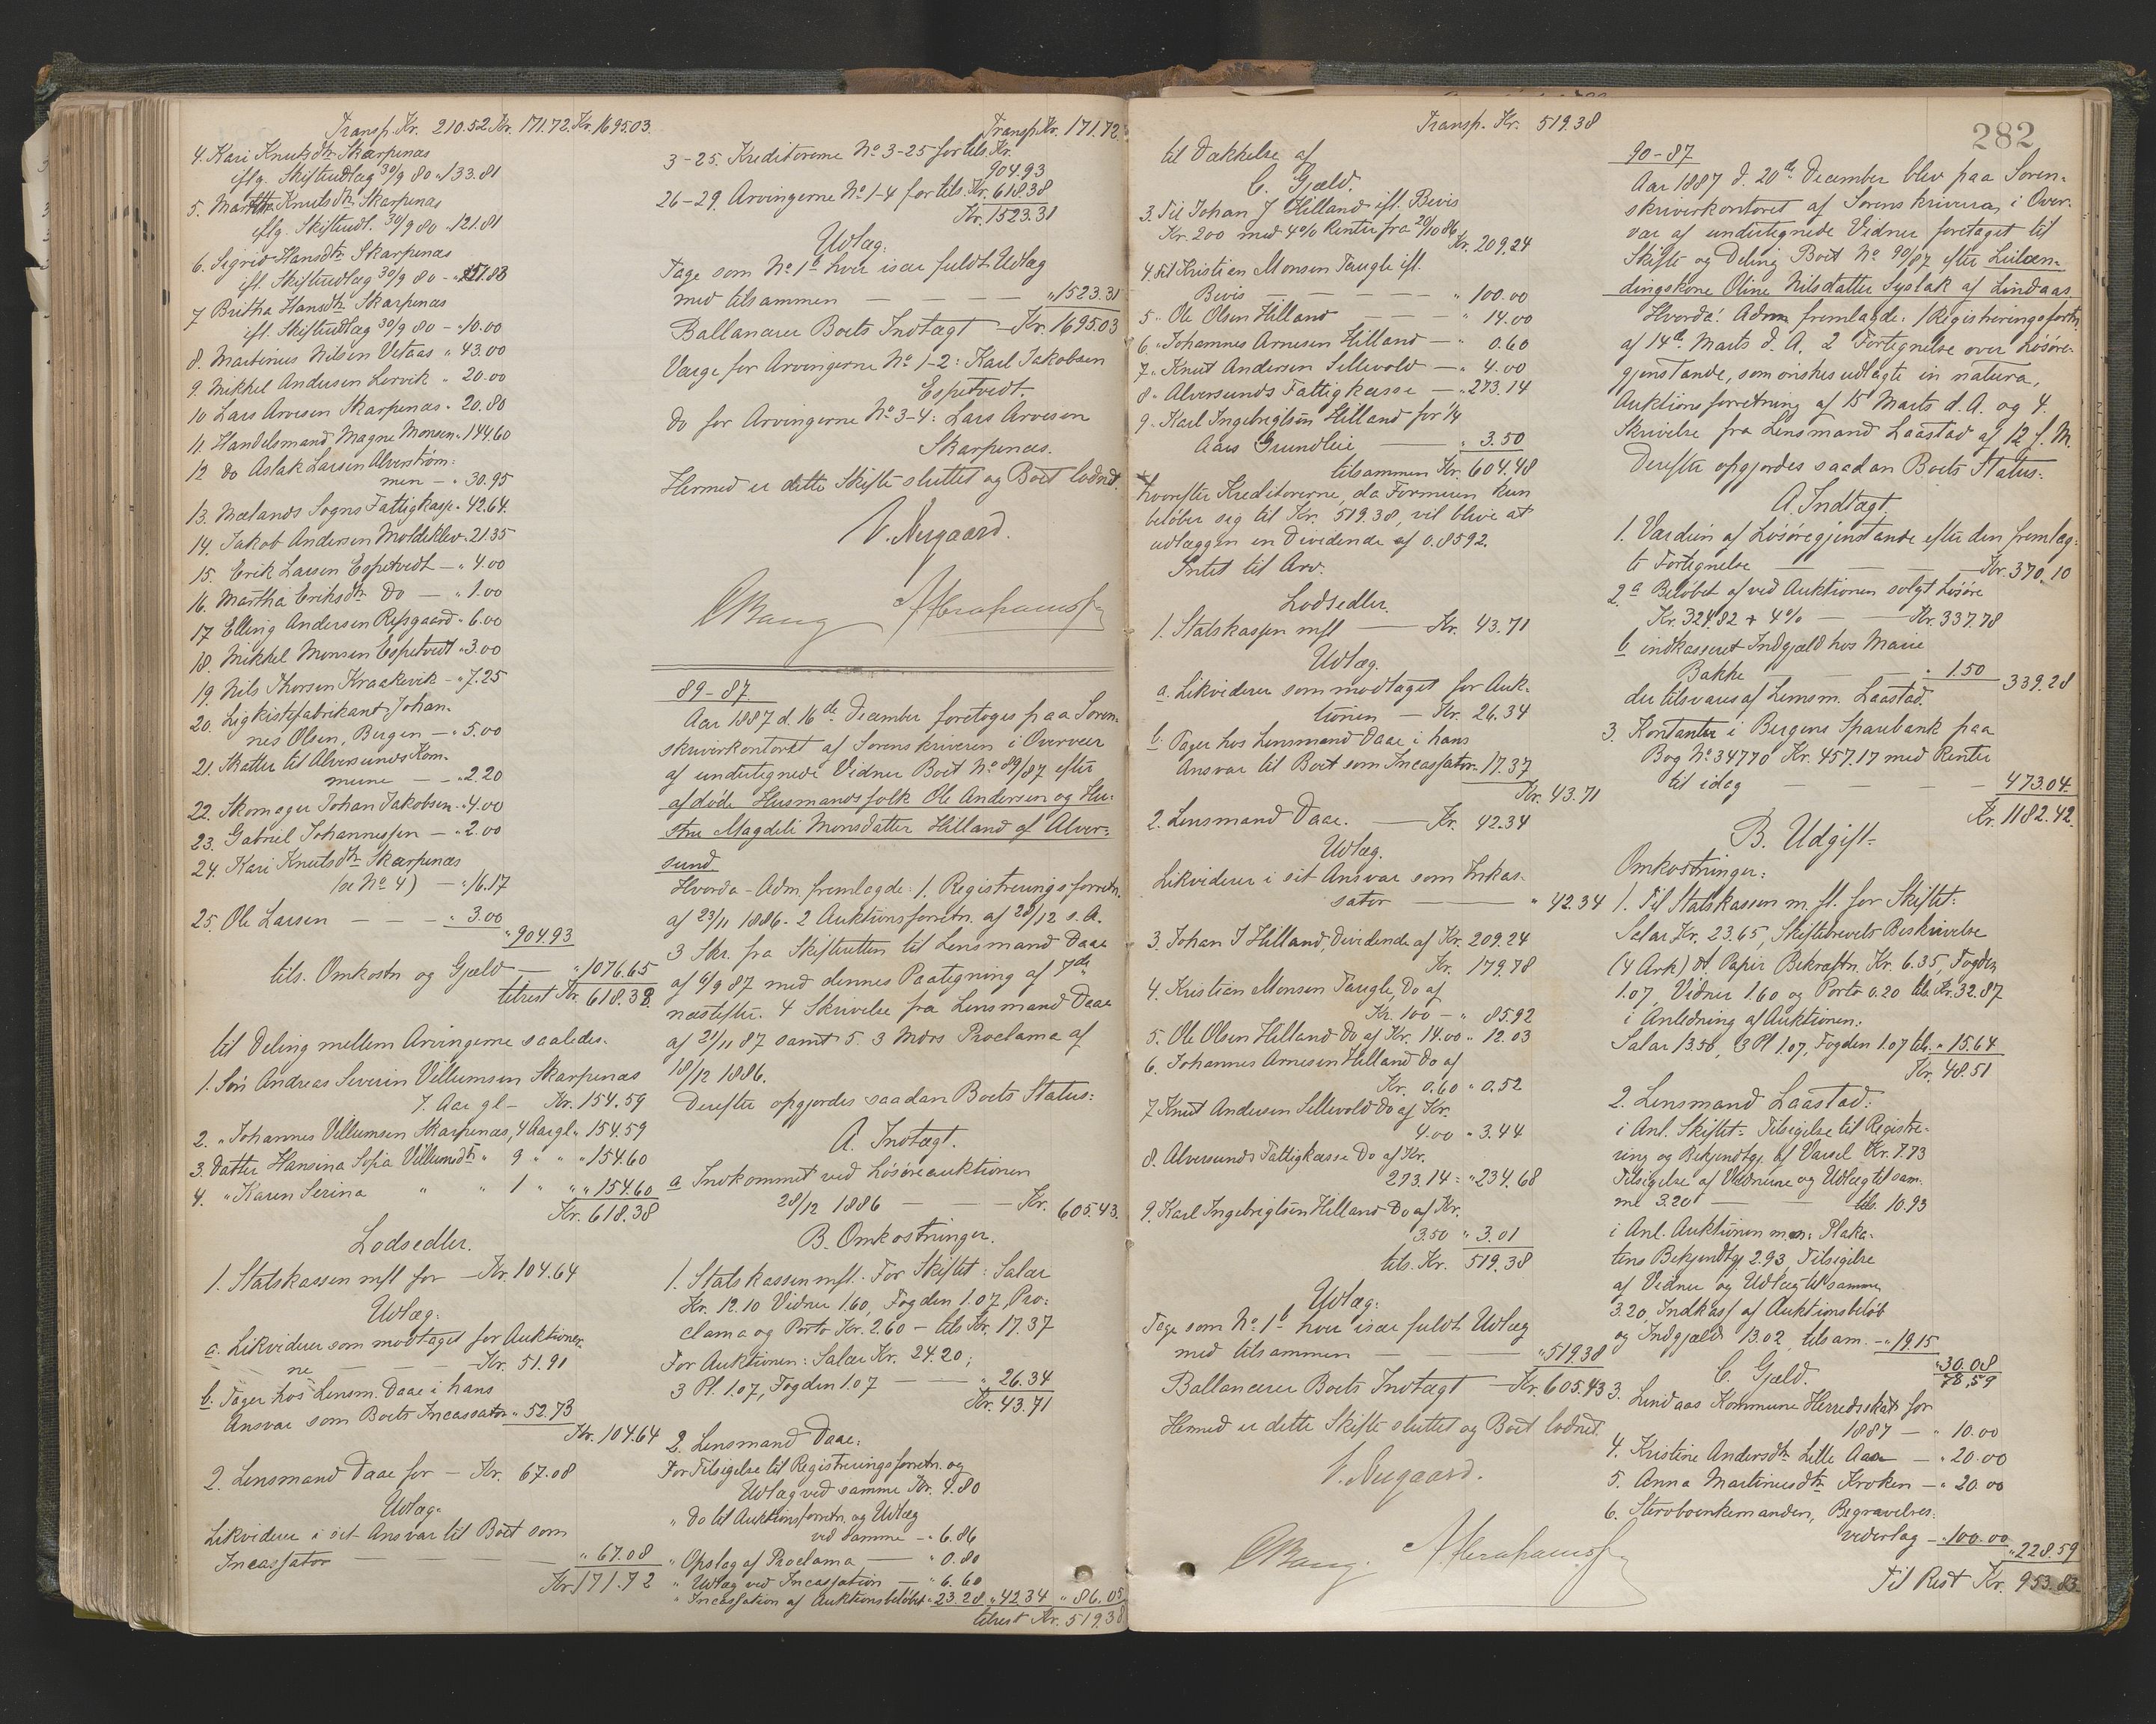 Transp. Kr. 210.52 Kr. 171.72 Kr. 1695.03.
4. Kari Knutsdtr Skarpenæs
iflg. Skifteudlæg 30/9 80 „ 133.81
5. Martha Knutsdtr Skarpenæs
iflg. Skifteudl. 30/9 80 „ 121.81
6. Sigrid Hansdtr Skarpenæs
ifl. Skifteudlæg 30/9 80 –
7 Britha Hansdtr Skarpenæs
ifl. Skifteudlæg 30/9 80 – „ 10.00
8. Martinus Nilsen Vetaas „ 43.00
9. Mikkel Andersen Lervik „ 20.00
10 Lars Arvesen Skarpenæs „ 20.80
11. Handelsmand Magne Monsen „ 144.60
12 do Aslak Larsen Alverstrøm:
men – „ 30.95
13. Mælands Sogns Fattigkasse „ 42.64.
14. Jakob Andersen Moldeklev „ 21.35
15. Erik Larsen Espetvedt – „ 4.00
16. Martha Eriksdtr Do – „ 1.00
17 Elling Andersen Refsgaard „ 6.00
18. Mikkel Monsen Espetvedt „ 3.00
19. Nils Thorsen Kraakevik – „ 7.25
20. Ligkistefabrikant Johan-
nes Olsen, Bergen – „ 5.00
21. Skatter til Alversunds Kom-
mune – – „ 2.20
22. Skomager Johan Jakobsen „ 4.00
23. Gabriel Johannessen – „ 2.00
24. Kari Knutsdtr Skarpenæs
(se No 4) – „ 16.17
25. Ole Larsen – – – „ 3.00
„ 904.93
tils. Omkostn og Gjæld – „ 1076.65
tilrest Kr. 618.38.
til Deling mellem Arvingerne saaledes.
1. Søn Andreas Severin Villumsen Skarpenæs
7. Aar gl – Kr. 154.59
2. „ Johannes Villumsen Skarpenæs, 4 Aar gl „ 154.59
3. Datter Hansina Sofia Villumsdtr „ 9 „ „ „ 154.60
4. „ Karen Serina „ „ 1 „ „ „ 154.60
Kr. 618.38
Lodsedler.
1. Statskassen mfl for – Kr. 104.64
Udlæg:
a. Likviderer som modtaget for Auktionen-
ne – – – – Kr. 51.91
b. Tager hos Lensm. Daae i hans
Ansvar som Boets Incassator „ 52.73
Kr. 104.64
2. Lensmand Daae for – Kr. 67.08
Udlæg.
Likviderer i sit Ansvar til Boet som
Incassator – – – „ 67.08
Kr. 171.72
Transp. Kr. 171.72.
3-25. Kreditorerne No 3-25 for tils. Kr.
904.93
26-29. Arvingerne No 1-4 for tils. Kr. 618.38
Kr. 1523.31
Udlæg:
Tage som No 1 b hver især fuldt Udlæg
med tilsammen – – – „ 1523.31
Ballancerer Boets Indtægt – Kr. 1695.03
Værge for Arvingerne No 1-2: Karl Jakobsen
Espetvedt.
do for Arvingerne No 3-4: Lars Arvesen
Skarpenæs.
Hermed er dette Skifte sluttet og Boet loddet.
V. Neegaard.
CBang Abrahamsen
89-87
Aar 1887 d. 16de December foretoges paa Soren-
skriverkontoret af Sorenskriveren i Overvær
af undertegnede Vidner Boet No 89/87 efter
afdøde Husmandsfolk Ole Andersen og Hu-
stru Magdeli Monsdatter Hilland af Alver-
sund.
Hvorda – Adm. fremlagde: 1. Registreringsforretn.
af 23/11 1886. 2 Auktionsforretn. af 28/12 s. A.
3 Skr. fra Skifteretten til Lensmand Daae
af 6/9 87 med dennes Paategning af 7de
næstefter. 4 Skrivelse fra Lensmand Daae
af 21/11 87 samt 5. 3 Mdrs Proclama af
18/12 1886.
Derefter opgjordes saadan Boets Status:
A. Indtægt.
a Indkommet ved Løsøreauktionen
28/12 1886 – – – Kr. 605.43.
B. Omkostninger.
1. Statskassen mfl. For Skiftet: Salær
Kr. 12.10 Vidner 1.60, Fogden 1.07, Pro-
clama og Porto Kr. 2.60 – tils Kr. 17.37
For Auktionen: Salær Kr. 24.20;
3 Pl. 1.07, Fogden 1.07 – – „ 26.34
Kr. 43.71
2. Lensmand Daae:
For Tilsigelse til Registreringsforretn. og
Udlæg ved samme Kr. 4.80
„ Do til Auktionsforretn. og Udlæg
ved samme – „ 6.86
„ Opslag af Proclama – „ 0.80
„ Udlæg ved Incassation – „ 6.60
„ Incassation af Auktionsbeløbet „ 23.28 „ 42.34 „ 86.05
tilrest Kr. 519.38
Transp. Kr. 519.38
til Dækkelse af
C. Gjæld.
3. Til Johan J Hilland ifl. Bevis
Kr. 200 med 4% Renter fra 20/10 86 Kr. 209.24
4. Til Kristian Monsen Taugle ifl.
Bevis – – – – „ 100.00
5. „ Ole Olsen Hilland – – – „ 14.00
6. „ Johannes Arnesen Hilland – „ 0.60
7. „ Knut Andersen Sellevold – „ 4.00
8. „ Alversunds Fattigkasse – „ 273.14
9. „ Karl Ingebrigtsen Hilland for 1/4
Aars Grundleie – „ 3.50
tilsammen Kr. 604.48
hvorefter Kreditorerne, da Formuen kun
beløber sig til Kr. 519.38, vil blive at
udlægge en Dividende af 0.8592.
Intet til Arv.
Lodsedler.
1. Statskassen mfl – Kr. 43.71
Udlæg.
a. Likviderer som modtaget for Auk-
tionen – Kr. 26.34
b. Tager hos Lensmand Daae i hans
Ansvar til Boet som Incassator 17.37
Kr. 43.71
2. Lensmand Daae. – Kr. 42.34
Udlæg.
Likviderer i sit Ansvar som Inkas-
sator – „ 42.34
3. Johan J Hilland, Dividende af Kr. 209.24
Kr. 179.78
4. Kristian Monsen Taugle, Do af
Kr. 100 – „ 85.92
5. Ole Olsen Hilland Do af Kr. 14.00 „ 12.03
6. Johannes Arnesen Hilland Do af
Kr. 0.60 „ 0.52
7 Knut Andersen Sellevold Do af Kr.
4.00 „ 3.44
8. Alversunds Fattigkasse Do af Kr.
273.14: „ 234.68
9. Karl Ingebrigtsen Hilland Do af Kr.
3.50 „ 3.01
tils. Kr. 519.38
Udlæg:
Tage som No 1 b hver især fuldt Udlæg
med tilsammen – – „ 519.38
Ballancerer Boets Indtægt – Kr. 605.43
Hermed er dette Skifte sluttet og Boet loddet.
V. Neegaard.
CBang. Abrahamsen
282
90-87
Aar 1887 d. 20de December blev paa Soren-
skriverkontoret af Sorenskriveren i Over-
vær af undertegnede Vidner foretaget til
Skifte og Deling Boet No 90/87 efter Leilæn-
dingskone Oline Nilsdatter Syslak af Lindaas
Hvorda: Admn fremlagde: 1 Registreringsforretn.
af 14de Marts d. A. 2 Fortegnelse over Løsøre-
gjenstande, som ønskes udlagte in natura,
Auktionsforretning af 15de Marts d. A. og 4.
Skrivelse fra Lensmand Laastad af 12 f. M.
Derefter opgjordes saadan Boets Status:
A. Indtægt.
1. Værdien af Løsøregjenstande efter den fremlag-
te Fortegnelse – – – Kr. 370.10
2. a Beløbet af ved Auktionen solgt Løsøre
Kr. 324.82 + 4% – Kr. 337.78
b indkasseret Indgjæld hos Marie
Bakke „ 1.50
der tilsvares af Lensm. Laastad. 339.28
3. Kontanter i Bergens Sparebank paa
Bog No 34770 Kr. 457.17 med Renter
til idag – – – 473.04.
Kr. 1182.42.
B. Udgift.
Omkostninger:
1. Til Statskassen m. fl. for Skiftet:
Salær Kr. 23.65, Skiftebrevets Beskrivelse
(4 Ark) st. Papir Bekræftn. Kr. 6.35, Fogden
1.07, Vidner 1.60 og Porto 0.20 tils Kr. 32.87
i Anledning af Auktionen:
Salær 13.50, 3 Pl 1.07, Fogden 1.07 tils. „ 15.64
Kr. 48.51
2. Lensmand Laastad:
i Anl. Skiftet: Tilsigelse til Registre-
ring og Bekjendtgj. af Varsel Kr. 7.73
Tilsigelse af Vidnerne og Udlæg til sam-
me 3.20 – tils. 10.93
i Anl. Auktionen m.m: Plaka-
tens Bekjendtgj 2.93, Tilsigelse
af Vidner og Udlæg til samme
3.20, Indkass. af Auktionsbeløb
og Indgjæld 13.02, tilsam. – „ 19.15
„ 30.08
78.59
C. Gjæld.
3. Lindaas Kommune Herredsskat for
1887 – „ 10.00
4. Kristine Andersdtr Lille Aas – „ 20.00
5. Anna Martinusdtr Kroken – „ 20.00
6. Stervboenkemanden, Begravelses-
vederlag – „ 100.00 „ 228.59
Til Rest Kr. 953.83